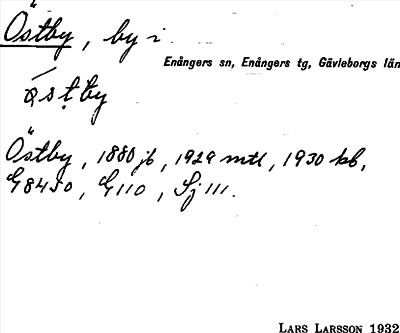 Östby, by i
Enångers sn, Enångers tg, Gävleborgs län
ǿsṭby
Östby, 1880 jb, 1929 mtl, 1930 kb,
G8450, G110, Sj 111.
LARS LARSSON 1932